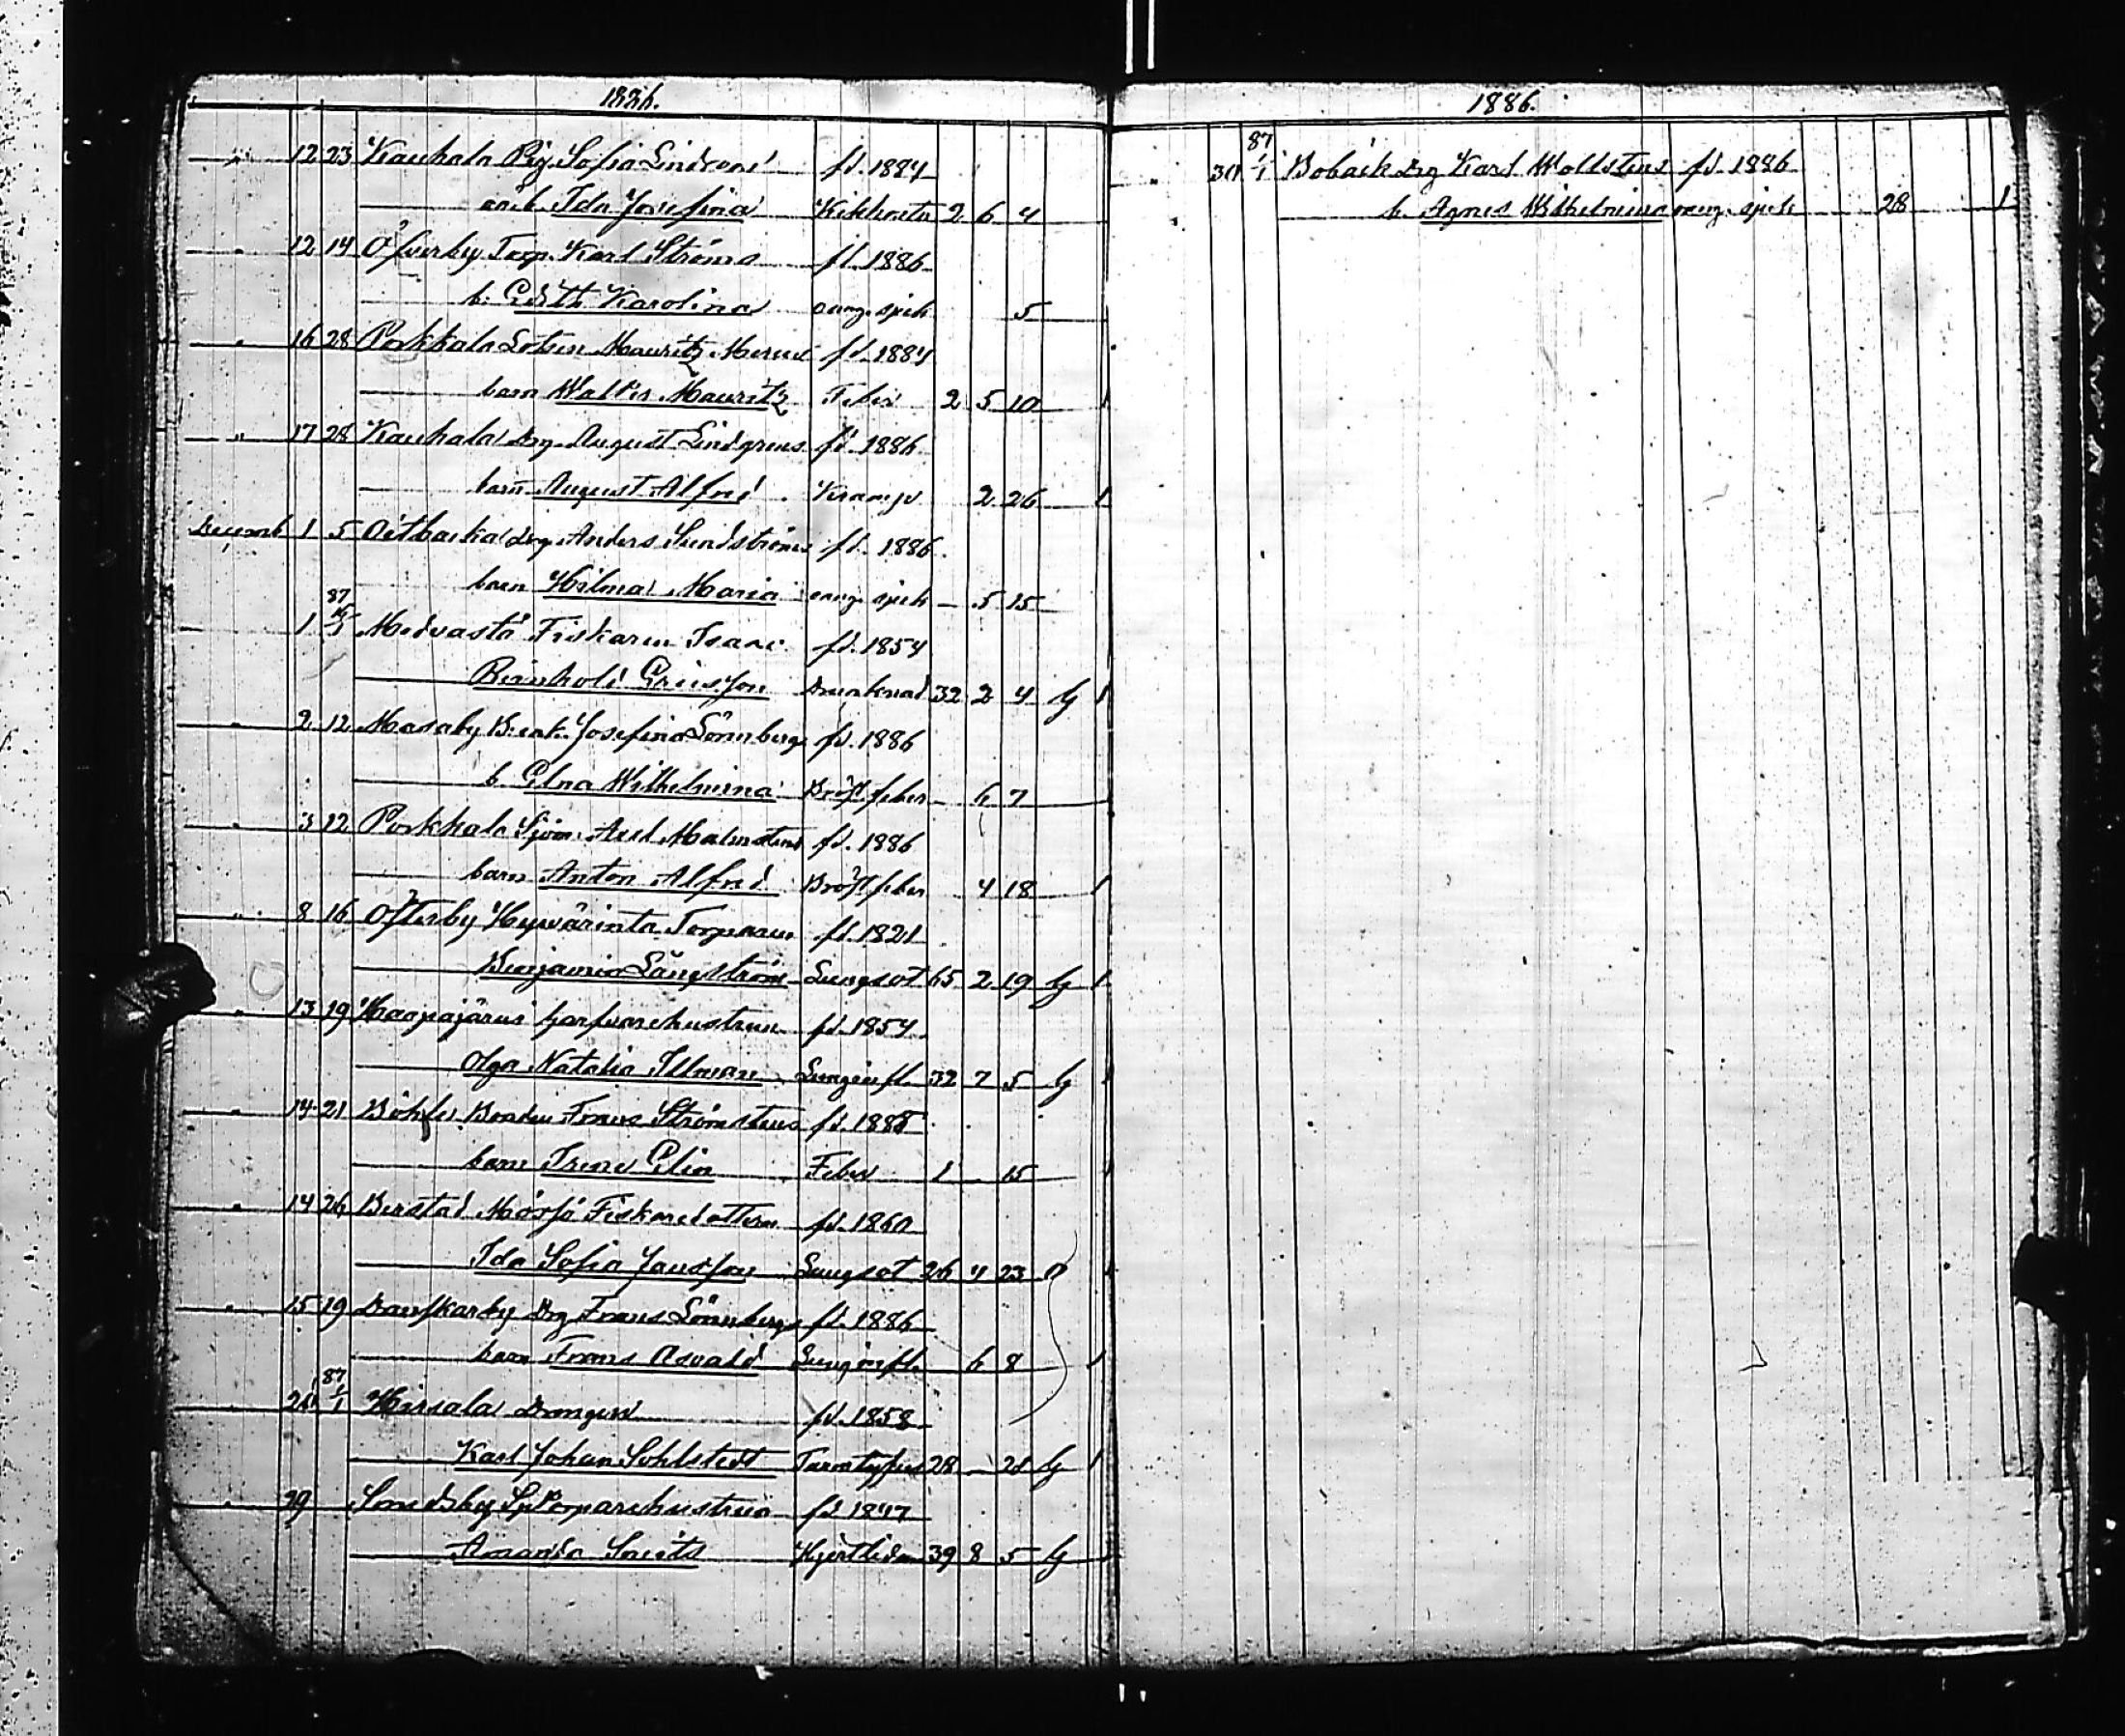 1886.
" 12 23 Kauhala Pig. Sofia Lindroos fd. 1884
oä. b. Ida Josefina Kikhosta 2 6 4
" 12 14 Öfverby Torp. Karl Ströms fd. 1886
b. Edith Karolina oang. sjuk 5
" 16 28 Porkkala Lotsen Mauritz fd. 1884
barn Mauritz Feber 2 5 10 1
" 17 28 Kauhala Drg. August Lindgrens fd. 1886
barn August Alfred Kramp 2 26 1
Decemb 1 5 Oitbacka Drg. Anders Sundströms fd. 1886
barn Hilma Maria oang. sjuk - 5 15
1 87 16/1 Medvastö Fiskaren Isaac fd. 1854
Reinhold Ericsson Drunknad 32 2 4 G 1
" 2 12 Masaby Josefina Lönnbergs fd. 1886
b. Elna Wilhelmina Bröstfeber - 6 7
" 3 12 Porkkala Sjöm. Axel Malmstens fd. 1886
barn Anton Alfred Bröstfeber 4 18 1
" 8 16 Öfterby Hyvärinta Torparen fd. 1821
Benjamin Långström Lungsot 65 2 19 G 1
" 13 19 Haapajärvi Garfvarehustrun fd. 1854
Olga Natalia Illman Lunginfl. 32 7 5 G 1
" 14 21 Böhle Bonden Frans Strömstens fd. 1885
barn Irene Elin Feber 1 - 15 1
" 14 26 Berstad Mörsö Fiskaredottern fd. 1860
Ida Sofia Jansson Lungsot 26 4 23 O 1
" 15 19 Danskarby Drg Frans Lönnbergs fd. 1886
barn Frans Osvald Lunginfl. 6 8 1
26 87 1/1 Hirsala Drängen fd. 1858
Karl Johan Sohlstedt Tarmtyfus 28 - 28 G 1
" 29 Smedsby Sp Torparehustrun fd. 1847
Amanda Smeds Hjertlidan 39 8 5 G 1
1886.
" 30 87 1/1 Bobäck Drg Karl Wollstens fd. 1886
b. Agnes Wilhelmina oang. sjuk 28 1